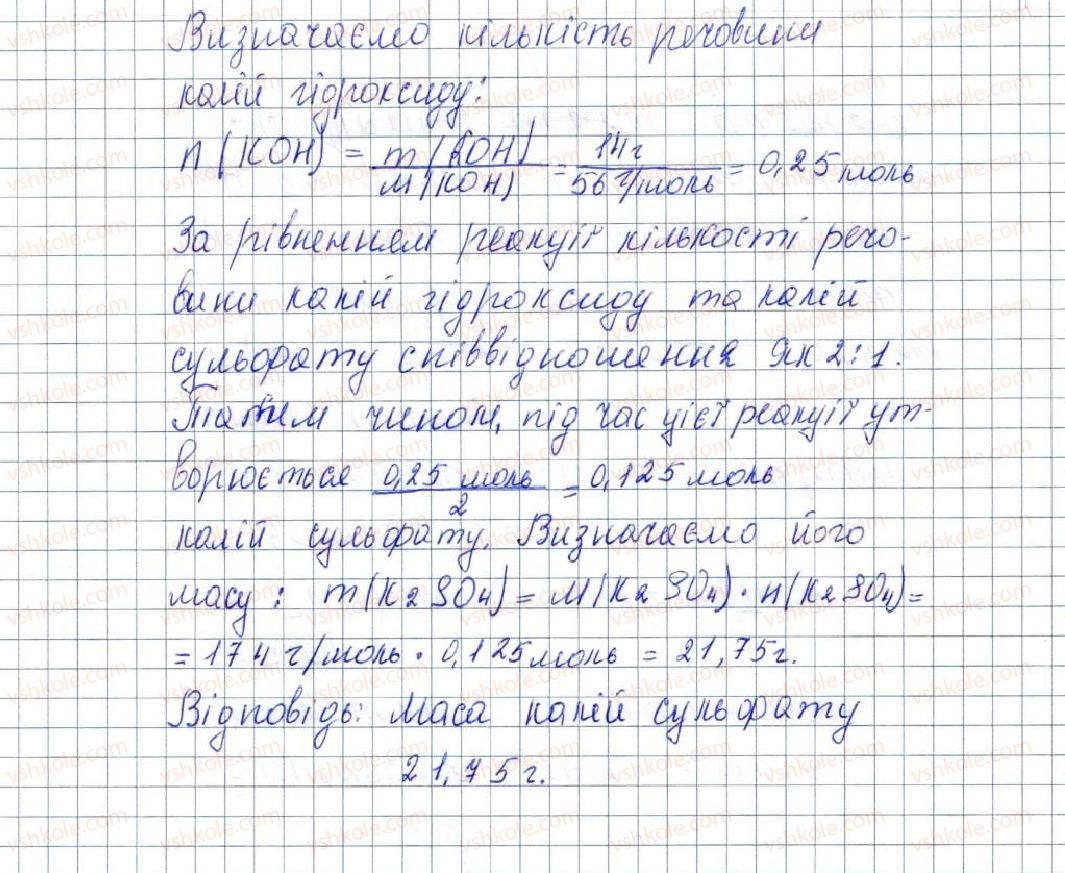 Визначаємо кількість речовини
калій гідроксиду:
n(KOH) = m(KOH)/M(KOH) = 14г/56 г/моль = 0,25 моль
За рівненням реакції кількості речо-
вини калій гідроксиду та калій
сульфату співвідношення як 2:1.
Таким чином, під час цієї реакції ут-
ворюється 0,25 моль/2 = 0,125 моль
калій сульфату. Визначаємо його
масу: m(K2SO4) = M(K2SO4) · n(K2SO4) =
= 174 г/моль · 0,125 моль = 21,75 г.
Відповідь: маса калій сульфату
21,75 г.
vshkole.com